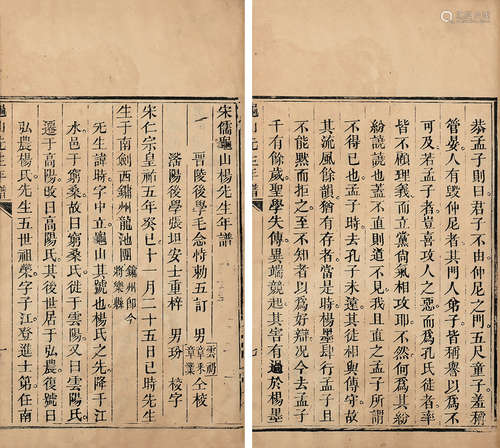 恭孟子則曰君子不由仲尼之門五尺童子羞稱
管晏人有毀仲尼者其門人弟子皆稱譽以為不
可及若孟子者豈喜攻人之惡而為孔氏徒者率
皆不顧理義而立黨尚氣相攻耶不然何為其紛
紛譊譊也蓋不直則道不見我且直之孟子所謂
不得已也孟子時去孔子未遠其徒相與傳守故
其流風餘韻猶有存者當是時楊墨肆行孟子且
能而拒之至不知者以為好辯况今去孟子
千有餘歲聖學失傳異端競起其害有過於楊墨
龜山先生年譜
宋儒龜山楊先生年譜
晉陵後學毛念恃勅五訂 男 雲祁 章業 仝校
瀋陽後學張坦安士重梓 男玢 校字
宋仁宗皇祐五年癸巳十一月二十五日巳時先生
生于南劍西鏞州龍池團 鏞州即今將樂縣
先生諱時字中立龜山其號也楊氏之先降于江
水邑于窮桑故曰窮桑氏徙于雲陽又曰雲陽氏
遷于高陽改曰高陽氏其後世居于弘農復號曰
弘農楊氏先生五世祖榮字子江登進士第在南
龜山先生年譜